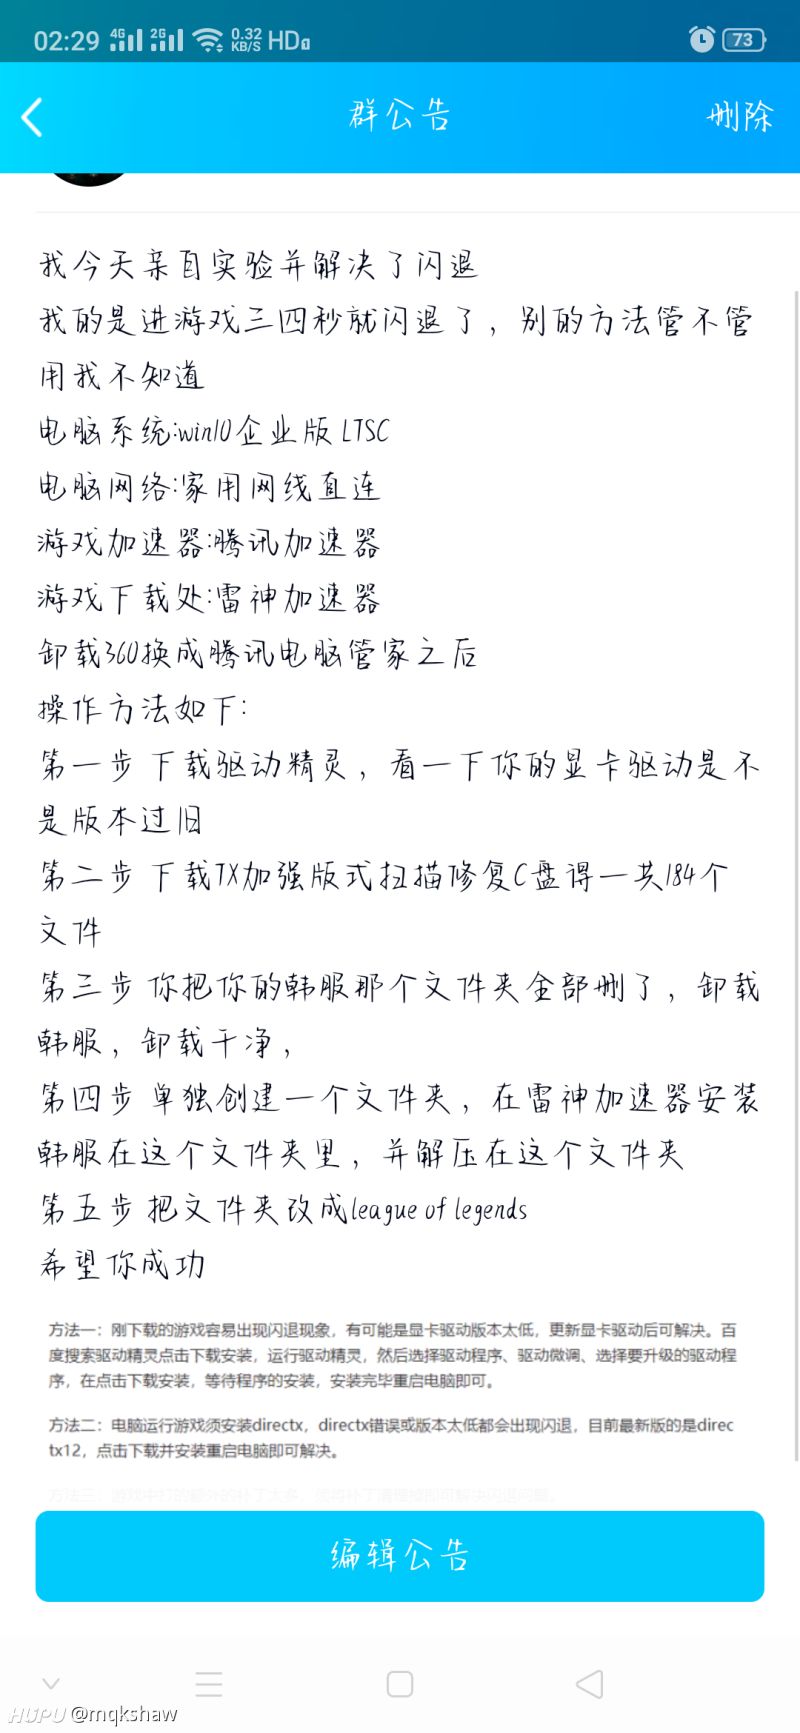 02:29 4G 2G 0.32 KB/S HD 73
群公告
删除
我今天亲自实验并解决了闪退
我的是进游戏三四秒就闪退了，别的方法管不管
用我不知道
电脑系统:win10企业版 LTSC
电脑网络:家用网线直连
游戏加速器:腾讯加速器
游戏下载处:雷神加速器
卸载360换成腾讯电脑管家之后
操作方法如下:
第一步 下载驱动精灵，看一下你的显卡驱动是不
是版本过旧
第二步 下载TX加强版式扫描修复C盘得一共184个
文件
第三步 你把你的韩服那个文件夹全部删了，卸载
韩服，卸载干净，
第四步 单独创建一个文件夹，在雷神加速器安装
韩服在这个文件夹里，并解压在这个文件夹
第五步 把文件夹改成league of legends
希望你成功
方法一：刚下载的游戏容易出现闪退现象，有可能是显卡驱动版本太低，更新显卡驱动后可解决。百
度搜索驱动精灵点击下载安装，运行驱动精灵，然后选择驱动程序、驱动微调、选择要升级的驱动程
序，在点击下载安装，等待程序的安装，安装完毕重启电脑即可。
方法二：电脑运行游戏须安装directx，directx错误或版本太低都会出现闪退，目前最新版的是direc
tx12，点击下载并安装重启电脑即可解决。
方法三：游戏中打的额外的补丁太多，
编辑公告
HUPU @mqkshaw